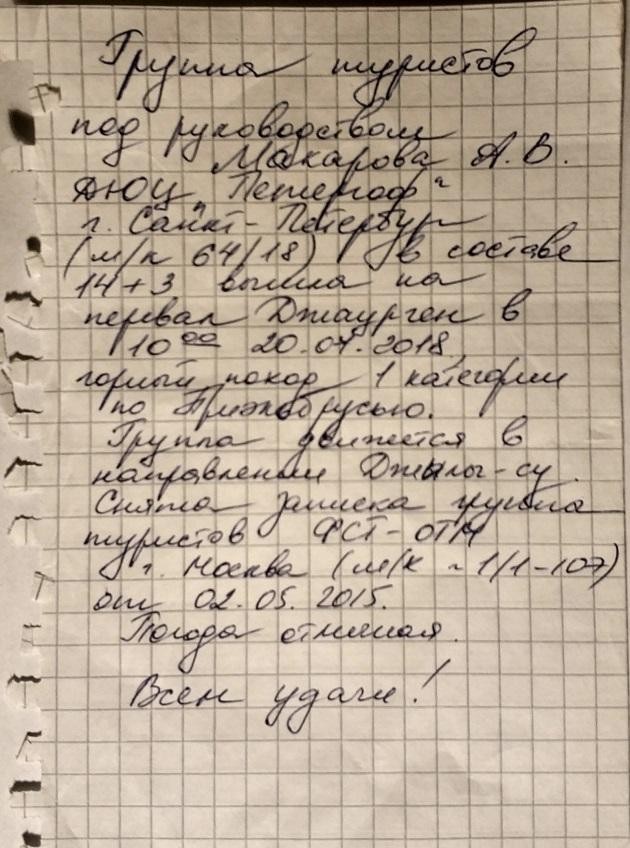 Группа туристов
под руководством
Макарова А.В.
ДЮЦ „Петергоф"
г. Санкт-Петербург
(м/к 64/18) в составе
14+3 вышла на
перевал Джаурген в
10⁰⁰ 20.07.2018,
горный поход 1 категории
по Приэльбрусью.
Группа движется в
направлении Джилы-су.
Снята записка группа
туристов ФСТ-ОТМ
г. Москва (м/к ~ 1/1-107)
от 02.05.2015.
Погода отличная.
Всем удачи!